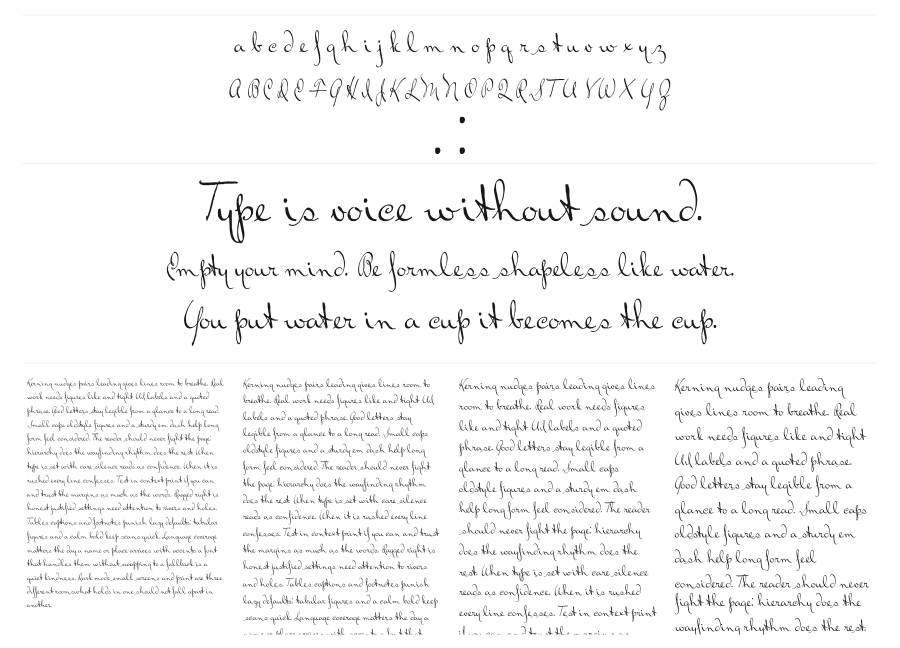 a b c d e f g h i j k l m n o p q r s t u v w x y z
A B C D E F G H I J K L M N O P Q R S T U V W X Y Z
.
. .
Type is voice without sound.
Empty your mind. Be formless shapeless like water.
You put water in a cup it becomes the cup.
Kerning nudges pairs leading gives lines room to breathe. Real
work needs figures like and tight UI labels and a quoted
phrase. Good letters stay legible from a glance to a long read.
Small caps oldstyle figures and a sturdy em dash help long
form feel considered. The reader should never fight the page:
hierarchy does the wayfinding rhythm does the rest. When
type is set with care silence reads as confidence. When it is
rushed every line confesses. Test in context print if you can
and trust the margins as much as the words. Ragged right is
honest justified settings need attention to rivers and holes.
Tables captions and footnotes punish lazy defaults: tabular
figures and a calm bold keep scans quick. Language coverage
matters the day a name or place arrives with accents a font
that handles them without swapping to a fallback is a
quiet kindness. Dark mode small screens and print are three
different rooms what holds in one should not fall apart in
another.
Kerning nudges pairs leading gives lines room to
breathe. Real work needs figures like and tight UI
labels and a quoted phrase. Good letters stay
legible from a glance to a long read. Small caps
oldstyle figures and a sturdy em dash help long
form feel considered. The reader should never fight
the page: hierarchy does the wayfinding rhythm
does the rest. When type is set with care silence
reads as confidence. When it is rushed every line
confesses. Test in context print if you can and trust
the margins as much as the words. Ragged right is
honest justified settings need attention to rivers
and holes. Tables captions and footnotes punish
lazy defaults: tabular figures and a calm bold keep
scans quick. Language coverage matters the day a
name or place arrives with accents a font that
Kerning nudges pairs leading gives lines
room to breathe. Real work needs figures
like and tight UI labels and a quoted
phrase. Good letters stay legible from a
glance to a long read. Small caps
oldstyle figures and a sturdy em dash
help long form feel considered. The reader
should never fight the page: hierarchy
does the wayfinding rhythm does the
rest. When type is set with care silence
reads as confidence. When it is rushed
every line confesses. Test in context print
if you can and trust the margins as
Kerning nudges pairs leading
gives lines room to breathe. Real
work needs figures like and tight
UI labels and a quoted phrase.
Good letters stay legible from a
glance to a long read. Small caps
oldstyle figures and a sturdy em
dash help long form feel
considered. The reader should never
fight the page: hierarchy does the
wayfinding rhythm does the rest.